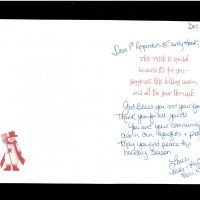 Dec
Dear 1st Responders @ Sandy Hook,
This wish is special
because it's for you—
Happiness this holiday season,
and all the year through.
God bless you and your fam
Thank you for all you do
You are your community
are in our thoughts + pra
May you find peace this
Holiday Season